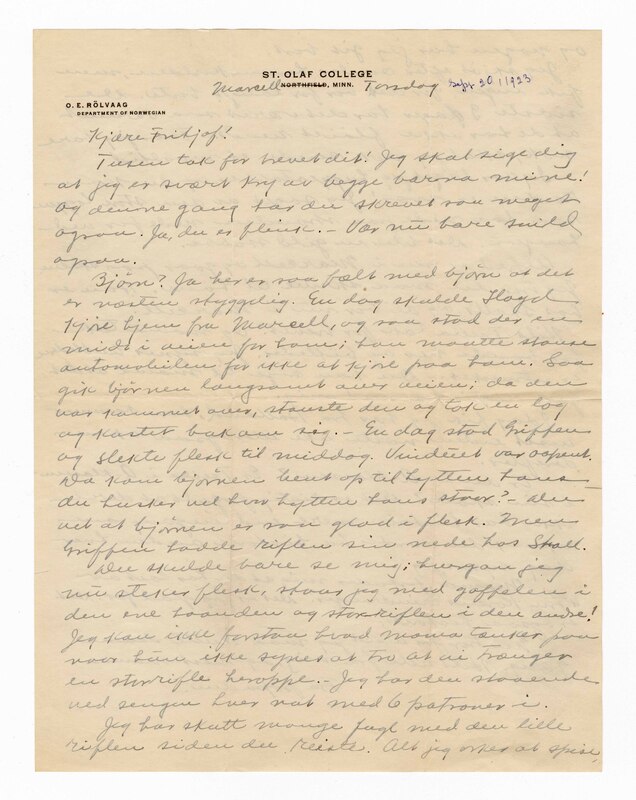 ST. OLAF COLLEGE
Marcell NORTHFIELD, MINN. Torsdag Sept 20/1923
O. E. RÖLVAAG
DEPARTMENT OF NORWEGIAN
Kjære Fritjof!
Tusen tak for brevet dit! Jeg skal sige dig
at jeg er svært kry av begge barna mine!
og denne gang har du skrevet saa meget
ogsaa. Ja, du er flink. – Vær nu bare snild
ogsaa.
Bjørn? Ja her er saa fælt med bjørn at det
er næsten styggelig. En dag skulde Lloyd
kjøre hjem fra Marcell, og saa stod der en
midt i veien for ham; han maatte stanse
automobilen for ikke at kjøre paa ham. Saa
gik bjørnen langsomt over veien; da den
var kommet over, stanste den og tok en log
og kastet bakom sig. – En dag stod Griffen
og stekte flesk til middag. Vinduet var oapent.
Da kom bjørnen bent op til hytten hans –
du husker vel hvor hytten hans staar? – Du
vet at bjørnen er saa glad i flesk. Men
Griffen hadde riflen sin nede hos Skoll.
Du skulde bare se mig; hvergang jeg
nu steker flesk, staar jeg med gaffelen i
den ene haanden og storriflen i den andre!
Jeg kan ikke forstaa hvad mama tænker paa
naar hun ikke synes at tro at vi trænger
en storrifle heroppe. – Jeg har den staaende
ved sengen hver nat med 6 patroner i.
Jeg har skutt mange fugl med den lille
riflen siden du reiste. Alt jeg orker at spise,